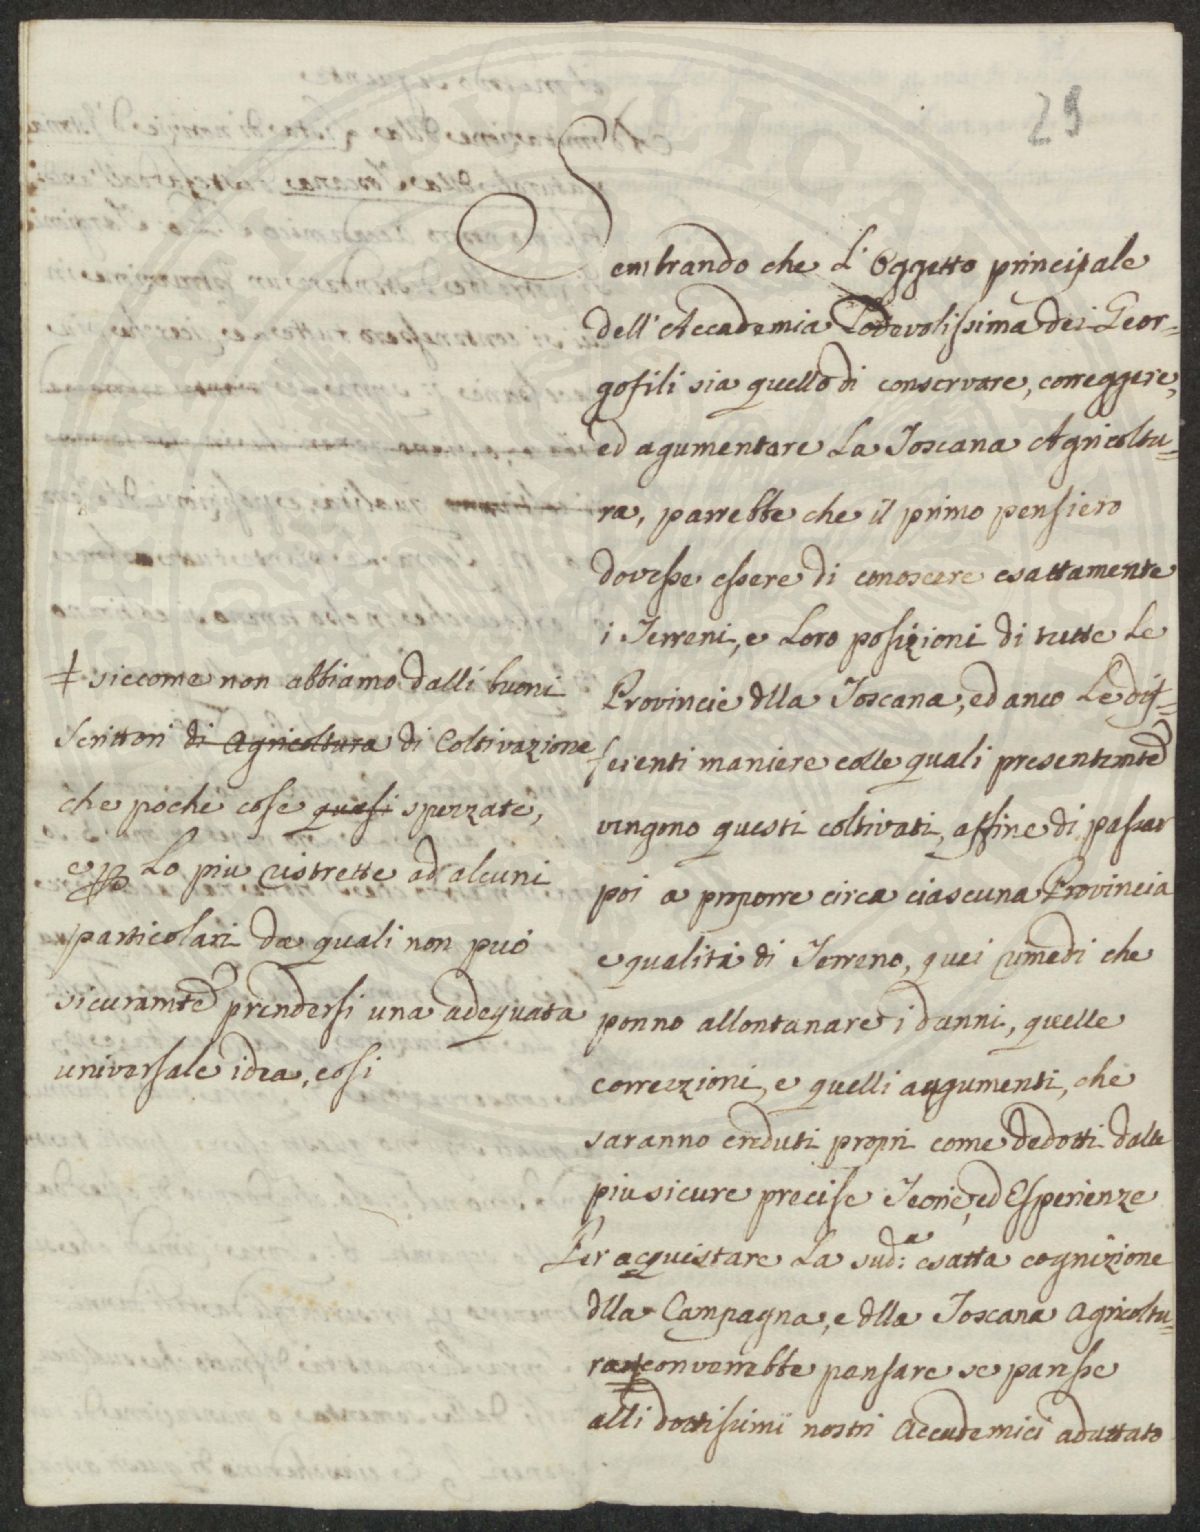 29
Sembrando che L'Oggetto principale
dell'Accademia Lodevolissima dei Geor-
gofili sia quello di conservare, correggere,
ed agumentare La Toscana Agricoltu-
ra, parrebbe che il primo pensiero
dovesse essere di conoscere esattamente
i Terreni, e Loro posizioni di tutte Le
Provincie dlla Toscana, ed anco Le dif-
ferenti maniere colle quali presentemte
vengono questi coltivati, affine di passar
poi a proporre circa ciascuna Provincia
e qualità di Terreno, quei rimedi che
ponno allontanare i danni, quelle
correzzioni, e quelli augumenti, che
saranno creduti propri come dedotti dalle
piu sicure precise Teorie, ed Esperienze
Per acquistare La sud:a esatta cognizione
dlla Campagna, e dlla Toscana Agricoltu-
ra ǂ converrebbe pensare se paresse
alli dottissimi nostri Accademici adattato
ǂ siccome non abbiamo dalli buoni
Scrittori di Agricoltura di Coltivazione
che poche cose quasi spezzate,
e p Lo piu ristrette ad alcuni
particolari da quali non può
sicuramte prendersi una adequata
universale idea, cosi